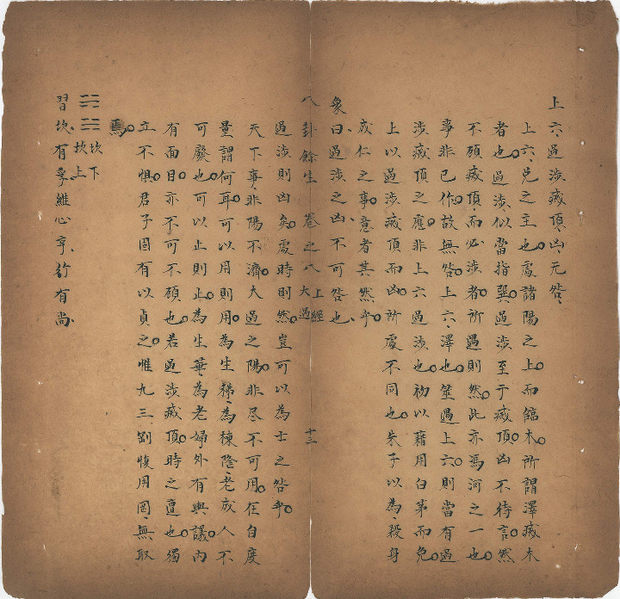 上六過涉滅頂凶无咎
上六兌之主也處諸陽之上而臨木所謂澤滅木
者也過涉似當指巽過涉至于滅頂凶不待言然
不顧滅頂而必涉者所遇則然此亦馮河之一也
事非已作故無咎上六澤也筮遇上六則當有過
涉滅頂之應非上六過涉也初以藉用白茅而免
上以過涉滅頂而凶所處不同也朱子以為殺身
成仁之事意者其然乎
象曰過涉之凶不可咎也
八卦餘生 卷之八 上經 大過 十三
過涉則凶矣處時則然豈可以為士之咎乎
天下事非陽不濟大過之陽非尽不可用但自度
量謂何耳可以用則用為生稊為棟隆老成人不
可廢也可以止則止為生華為老婦外有輿議內
有面目亦不可不顧也若過涉滅頂時之遭也獨
立不惧君子固有以貞之惟九三剛愎用罔無取
焉
坎下
坎上
習坎有孚維心亨行有尚